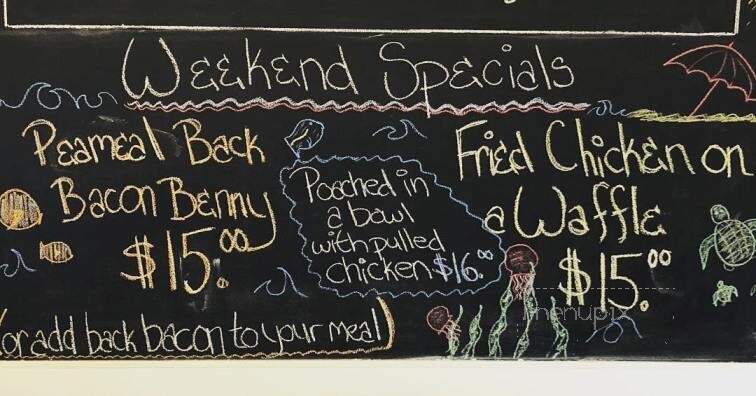 Weekend Specials
Peameal Back
Bacon Benny
$15.00
(or add back bacon to your meal)
Poached in
a bowl
with pulled
chicken $16.00
Fried Chicken on
a Waffle
$15.00
menupix